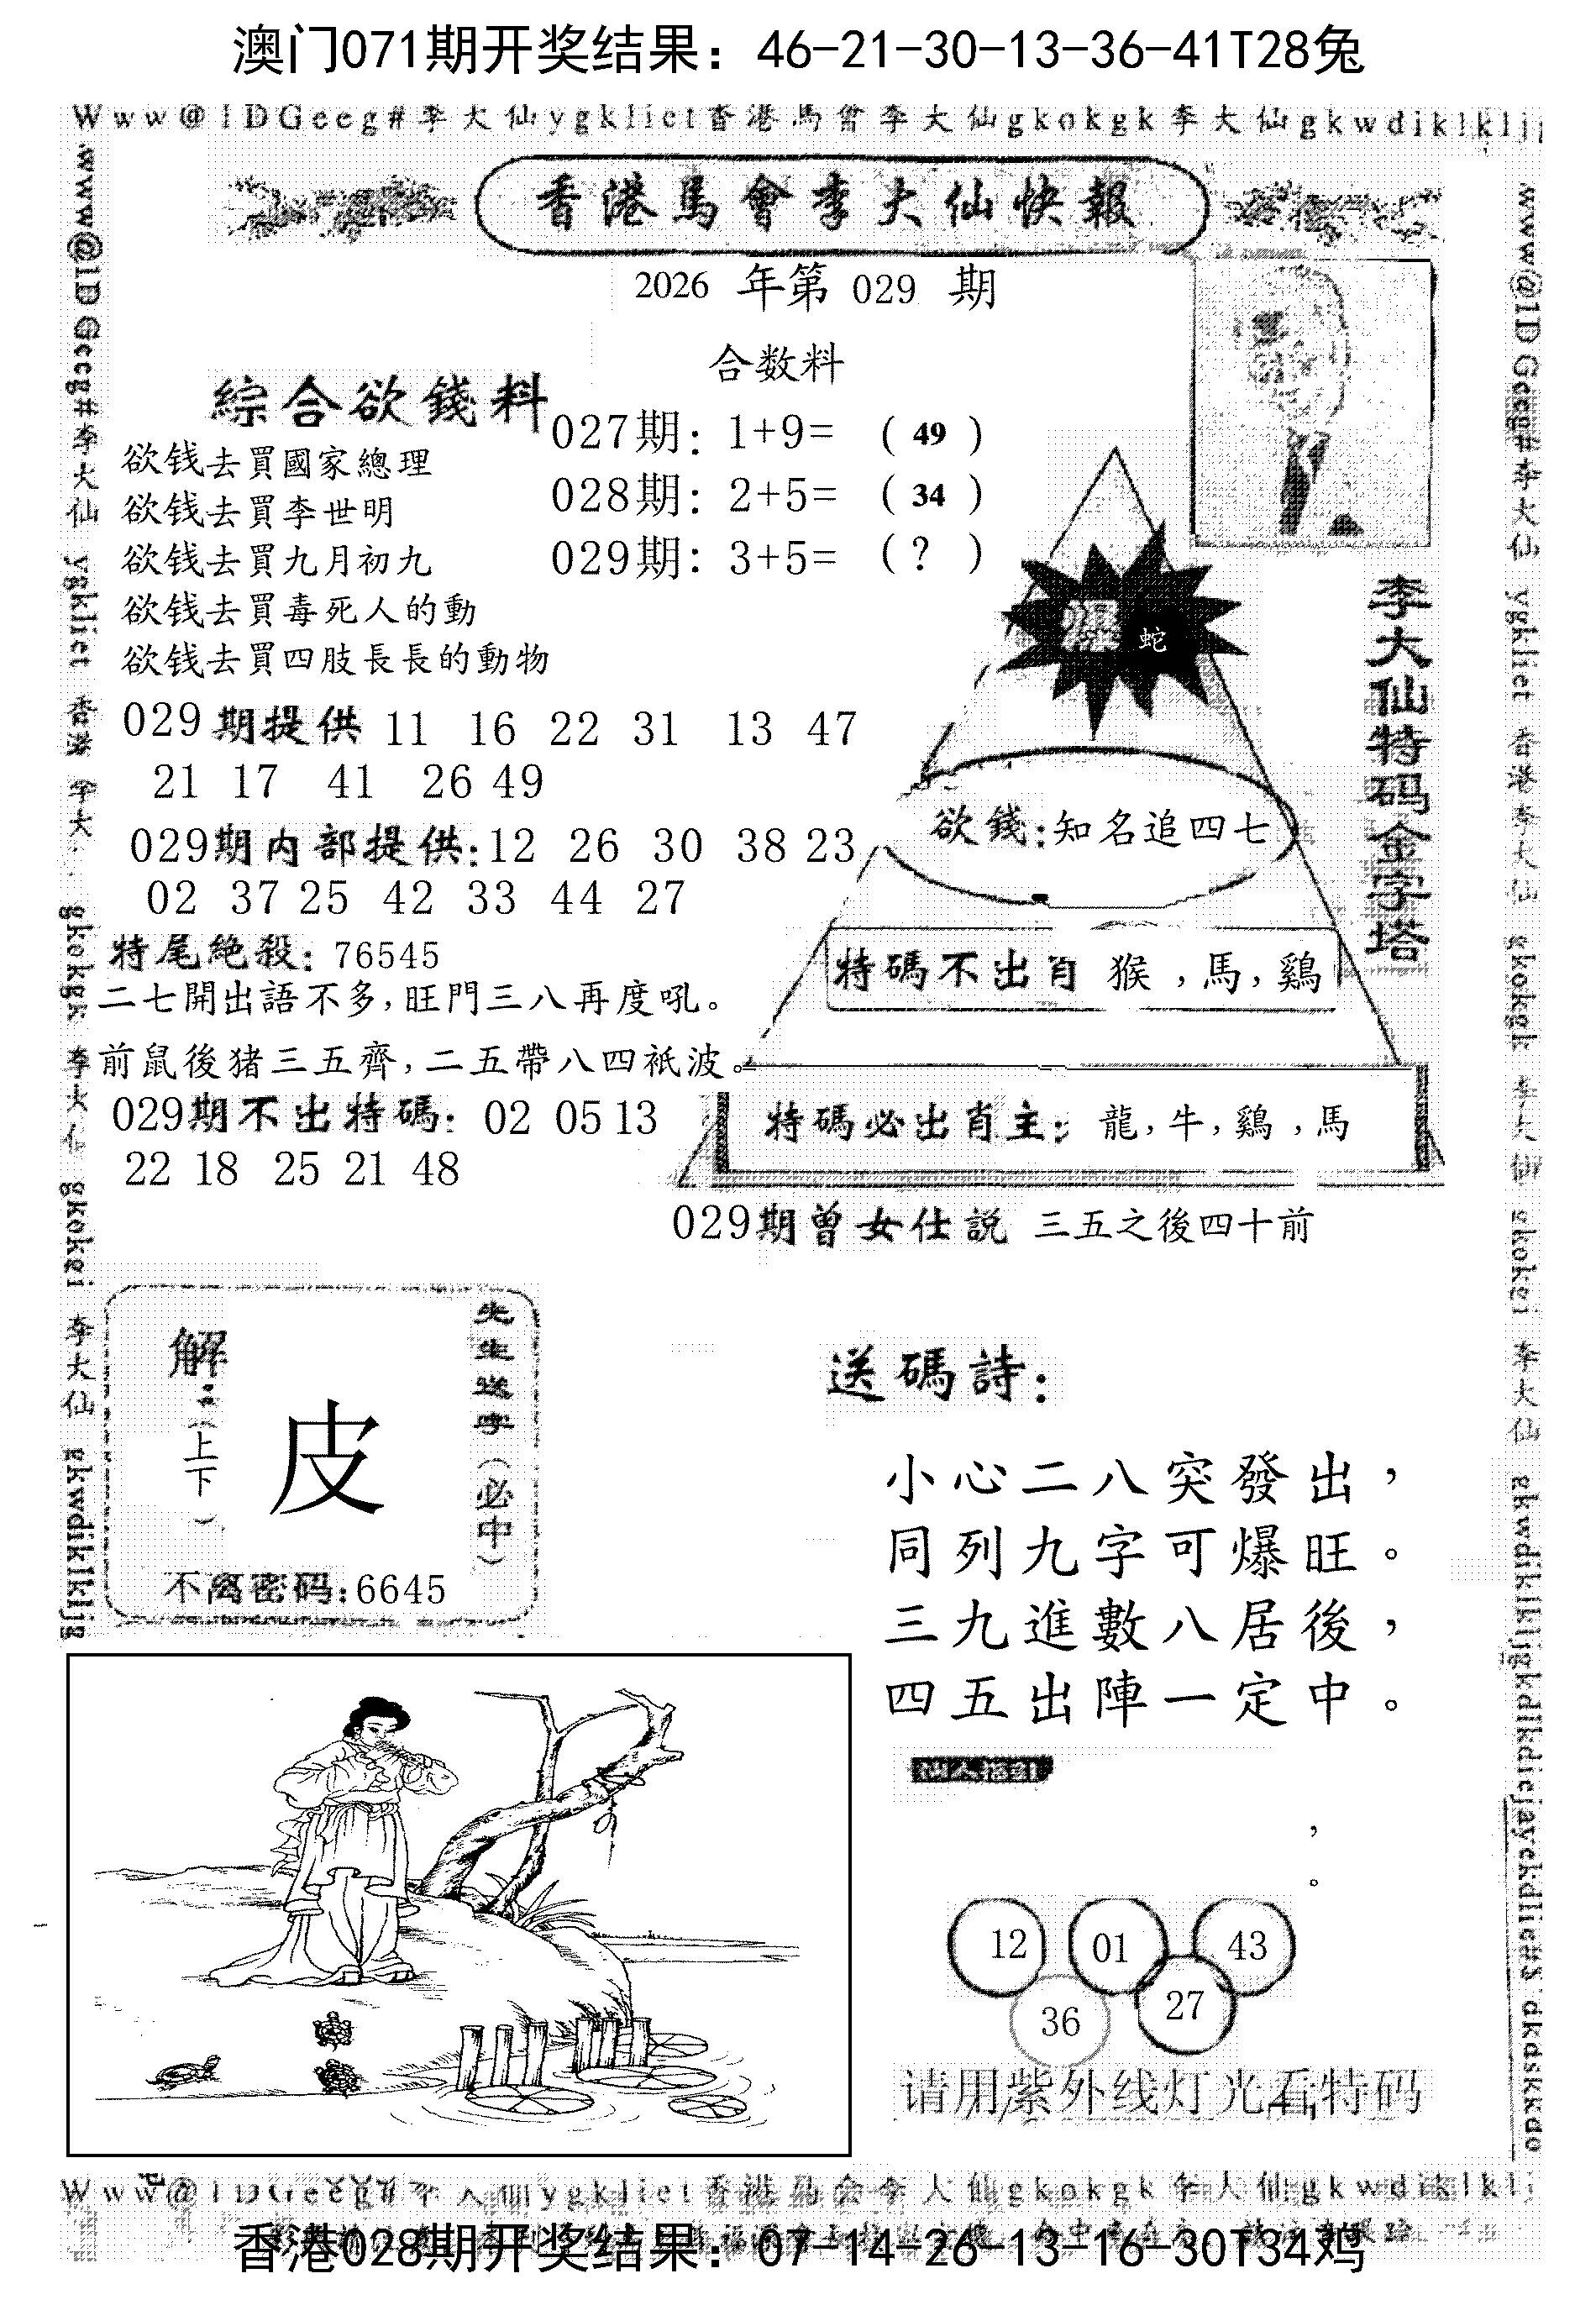 澳门071期开奖结果：46-21-30-13-36-41T28兔
Www@1DGeeg#李大仙ygkliet香港馬會李大仙gkokgk李大仙gkwdiklklj
香港馬會李大仙快報
2026 年第 029 期
合数料
綜合欲錢料
027期：1+9= （49）
028期：2+5= （34）
029期：3+5= （？）
欲钱去買國家總理
欲钱去買李世明
欲钱去買九月初九
欲钱去買毒死人的動
欲钱去買四肢長長的動物
蛇
李大仙特码金字塔
029期提供 11 16 22 31 13 47
21 17 41 26 49
欲錢：知名追四七
029期内部提供：12 26 30 38 23
02 37 25 42 33 44 27
特尾絶殺：76545
特碼不出肖 猴，馬，鷄
二七開出語不多，旺門三八再度吼。
前鼠後猪三五齊，二五帶八四祇波。
029期不出特碼：02 05 13
22 18 25 21 48
特碼必出肖主：龍，牛，鷄，馬
029期曾女仕説 三五之後四十前
先生送字（必中）
解：（上下）
皮
不离密码：6645
送碼詩：
小心二八突發出，
同列九字可爆旺。
三九進數八居後，
四五出陣一定中。
，
。
12 01 43
36 27
请用紫外线灯光看特码
香港028期开奖结果：07-14-26-13-16-30T34鸡